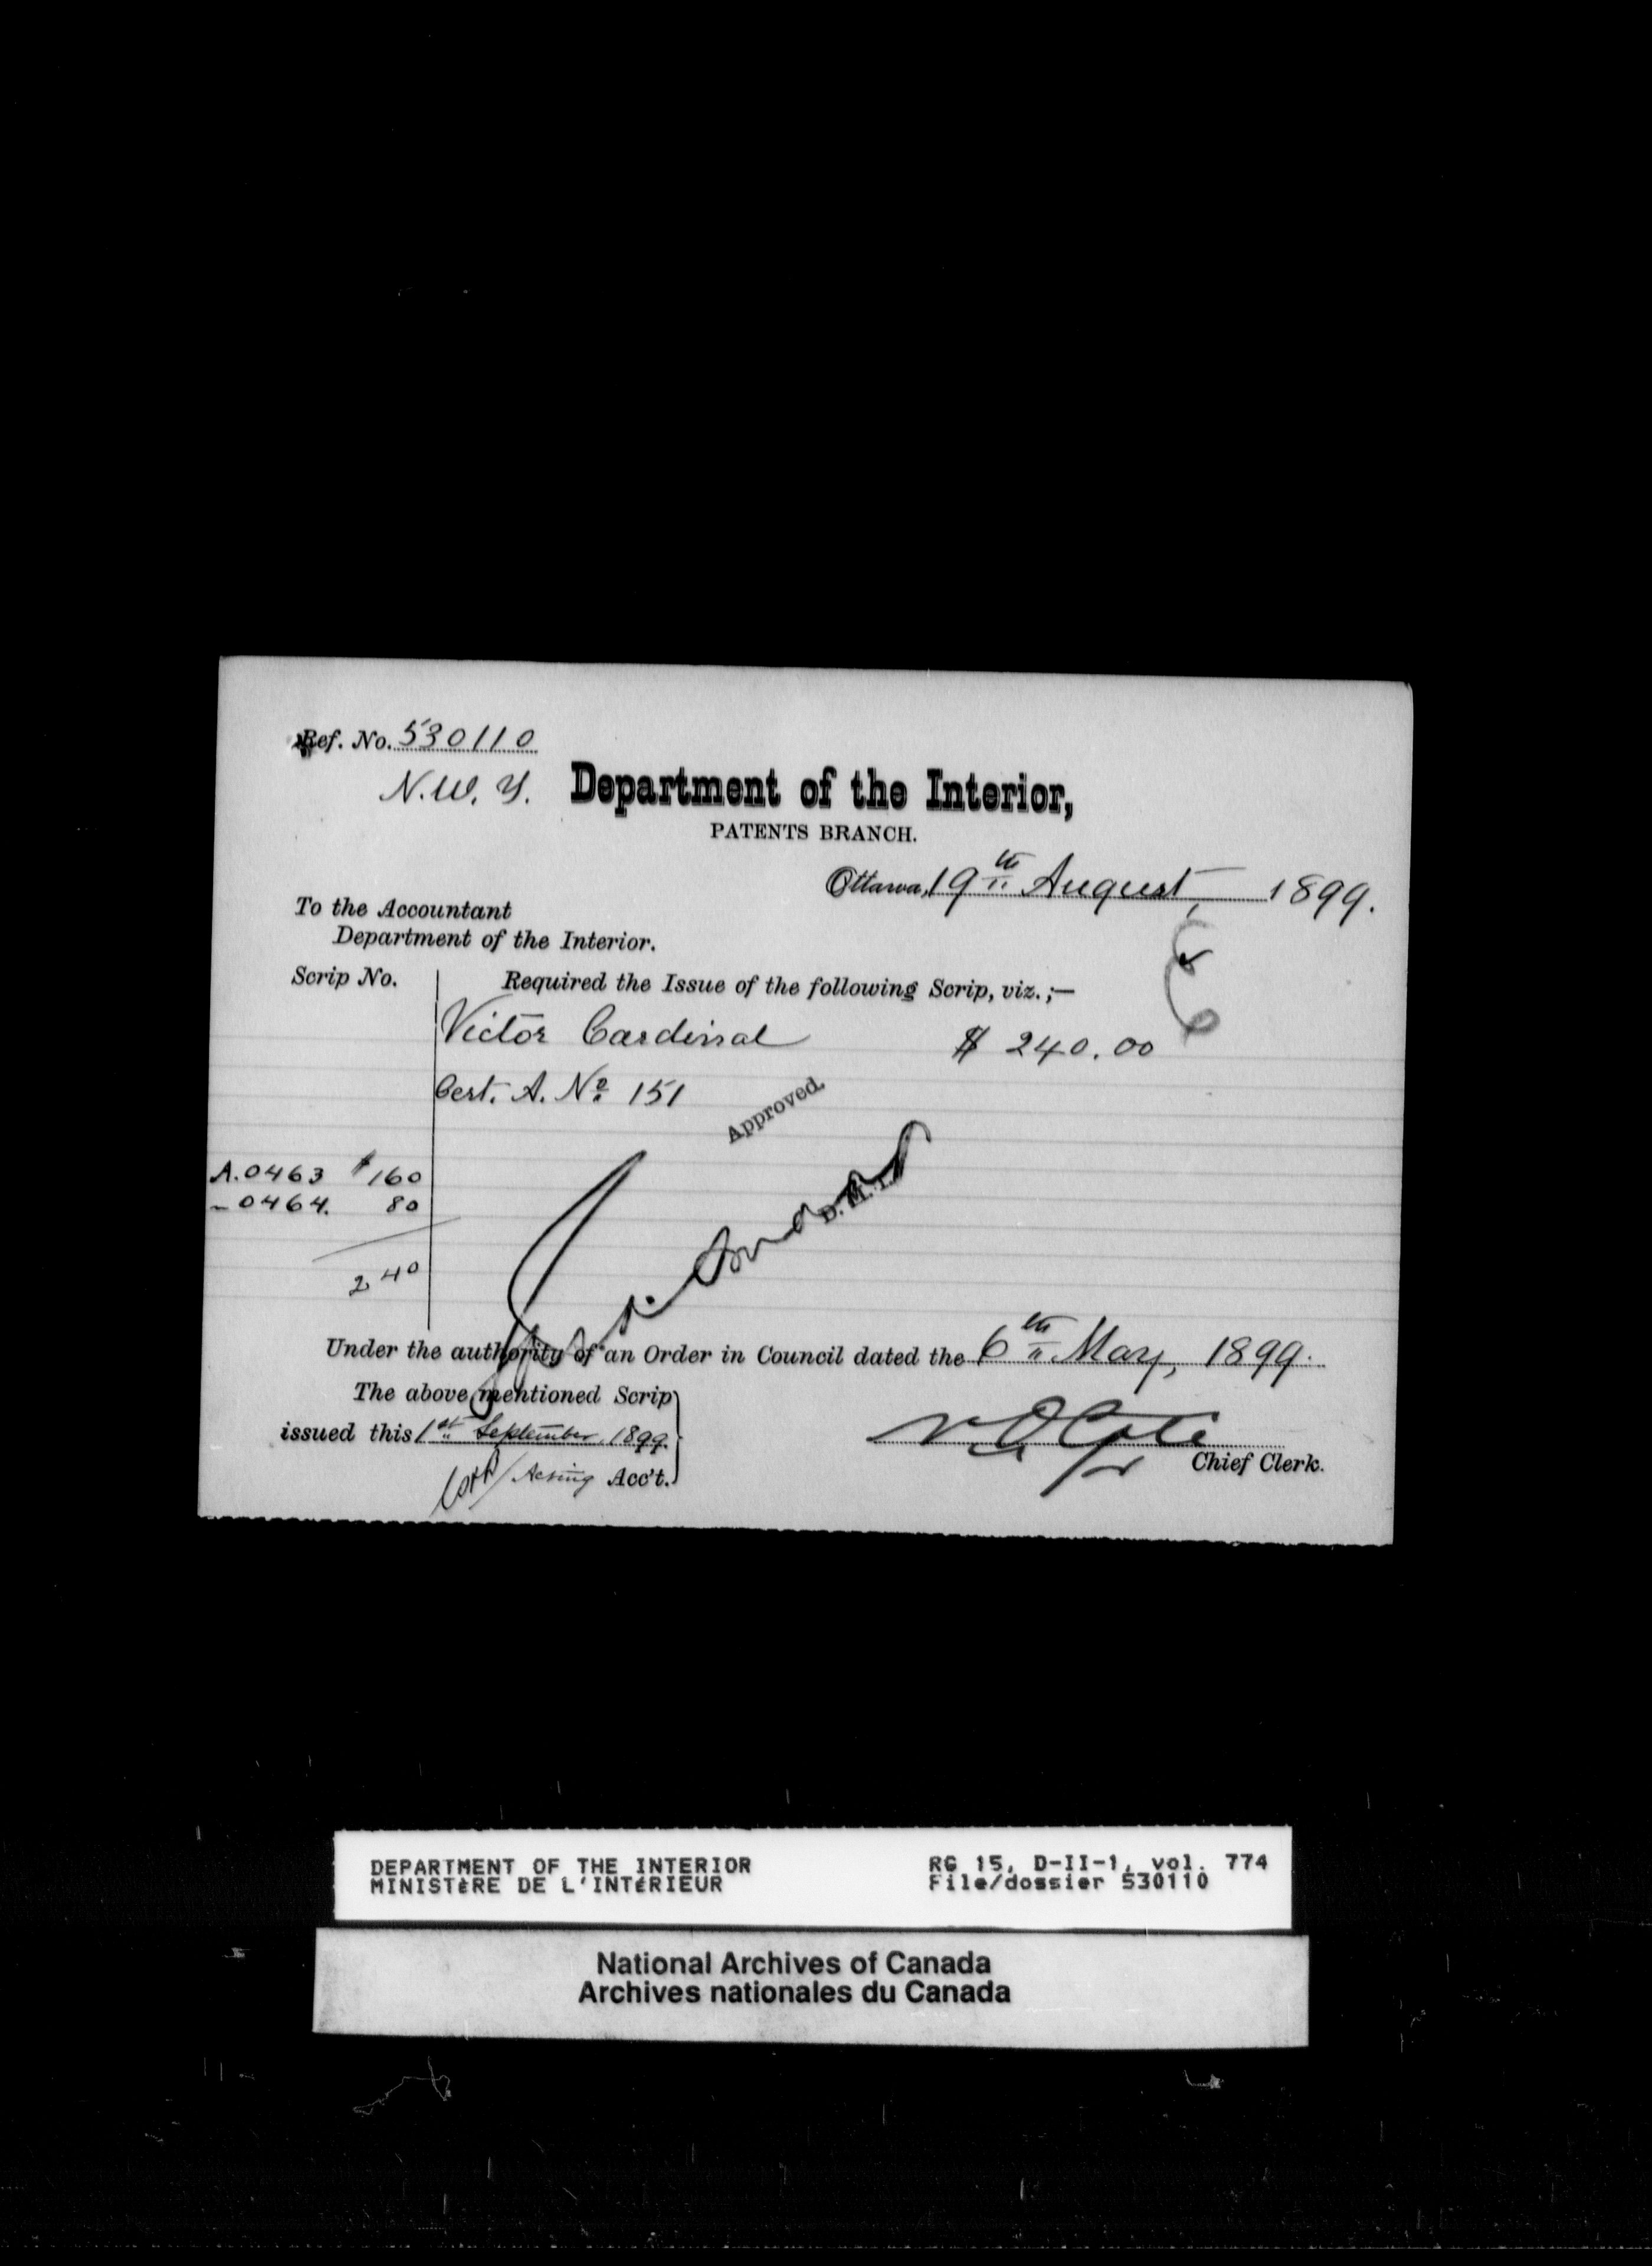 Ref. No. 530110
N.W.Y.
Department of the Interior,
PATENTS BRANCH.
Ottawa, 19th August, 1899.
To the Accountant
Department of the Interior.
Scrip No.
Required the Issue of the following Scrip, viz.;—
Victor Cardinal $ 240.00
Cert. A. No. 151
Approved,
D.M.I.
A.0463 $160
- 0464. 80
240
Under the authority of an Order in Council dated the 6th May, 1899.
The above mentioned Scrip
issued this 1st September, 1899.
Acting Acc't.
Chief Clerk.
DEPARTMENT OF THE INTERIOR
MINISTÈRE DE L'INTÉRIEUR
RG 15, D-II-1, vol. 774
File/dossier 530110
National Archives of Canada
Archives nationales du Canada